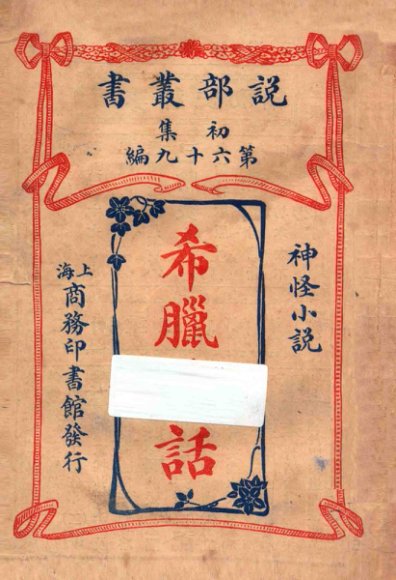 説部叢書
初集
第六十九編
神怪小説
希臘
話
上海商務印書館發行